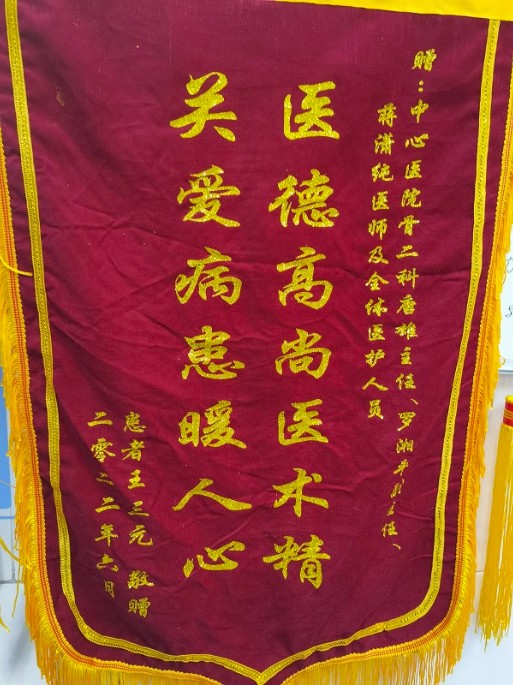 赠：中心医院骨二科唐雄主任、罗湘平副主任、
蒋潇纯医师及全体医护人员
医德高尚医术精
关爱病患暖人心
患者王三元 敬赠
二零二二年六月